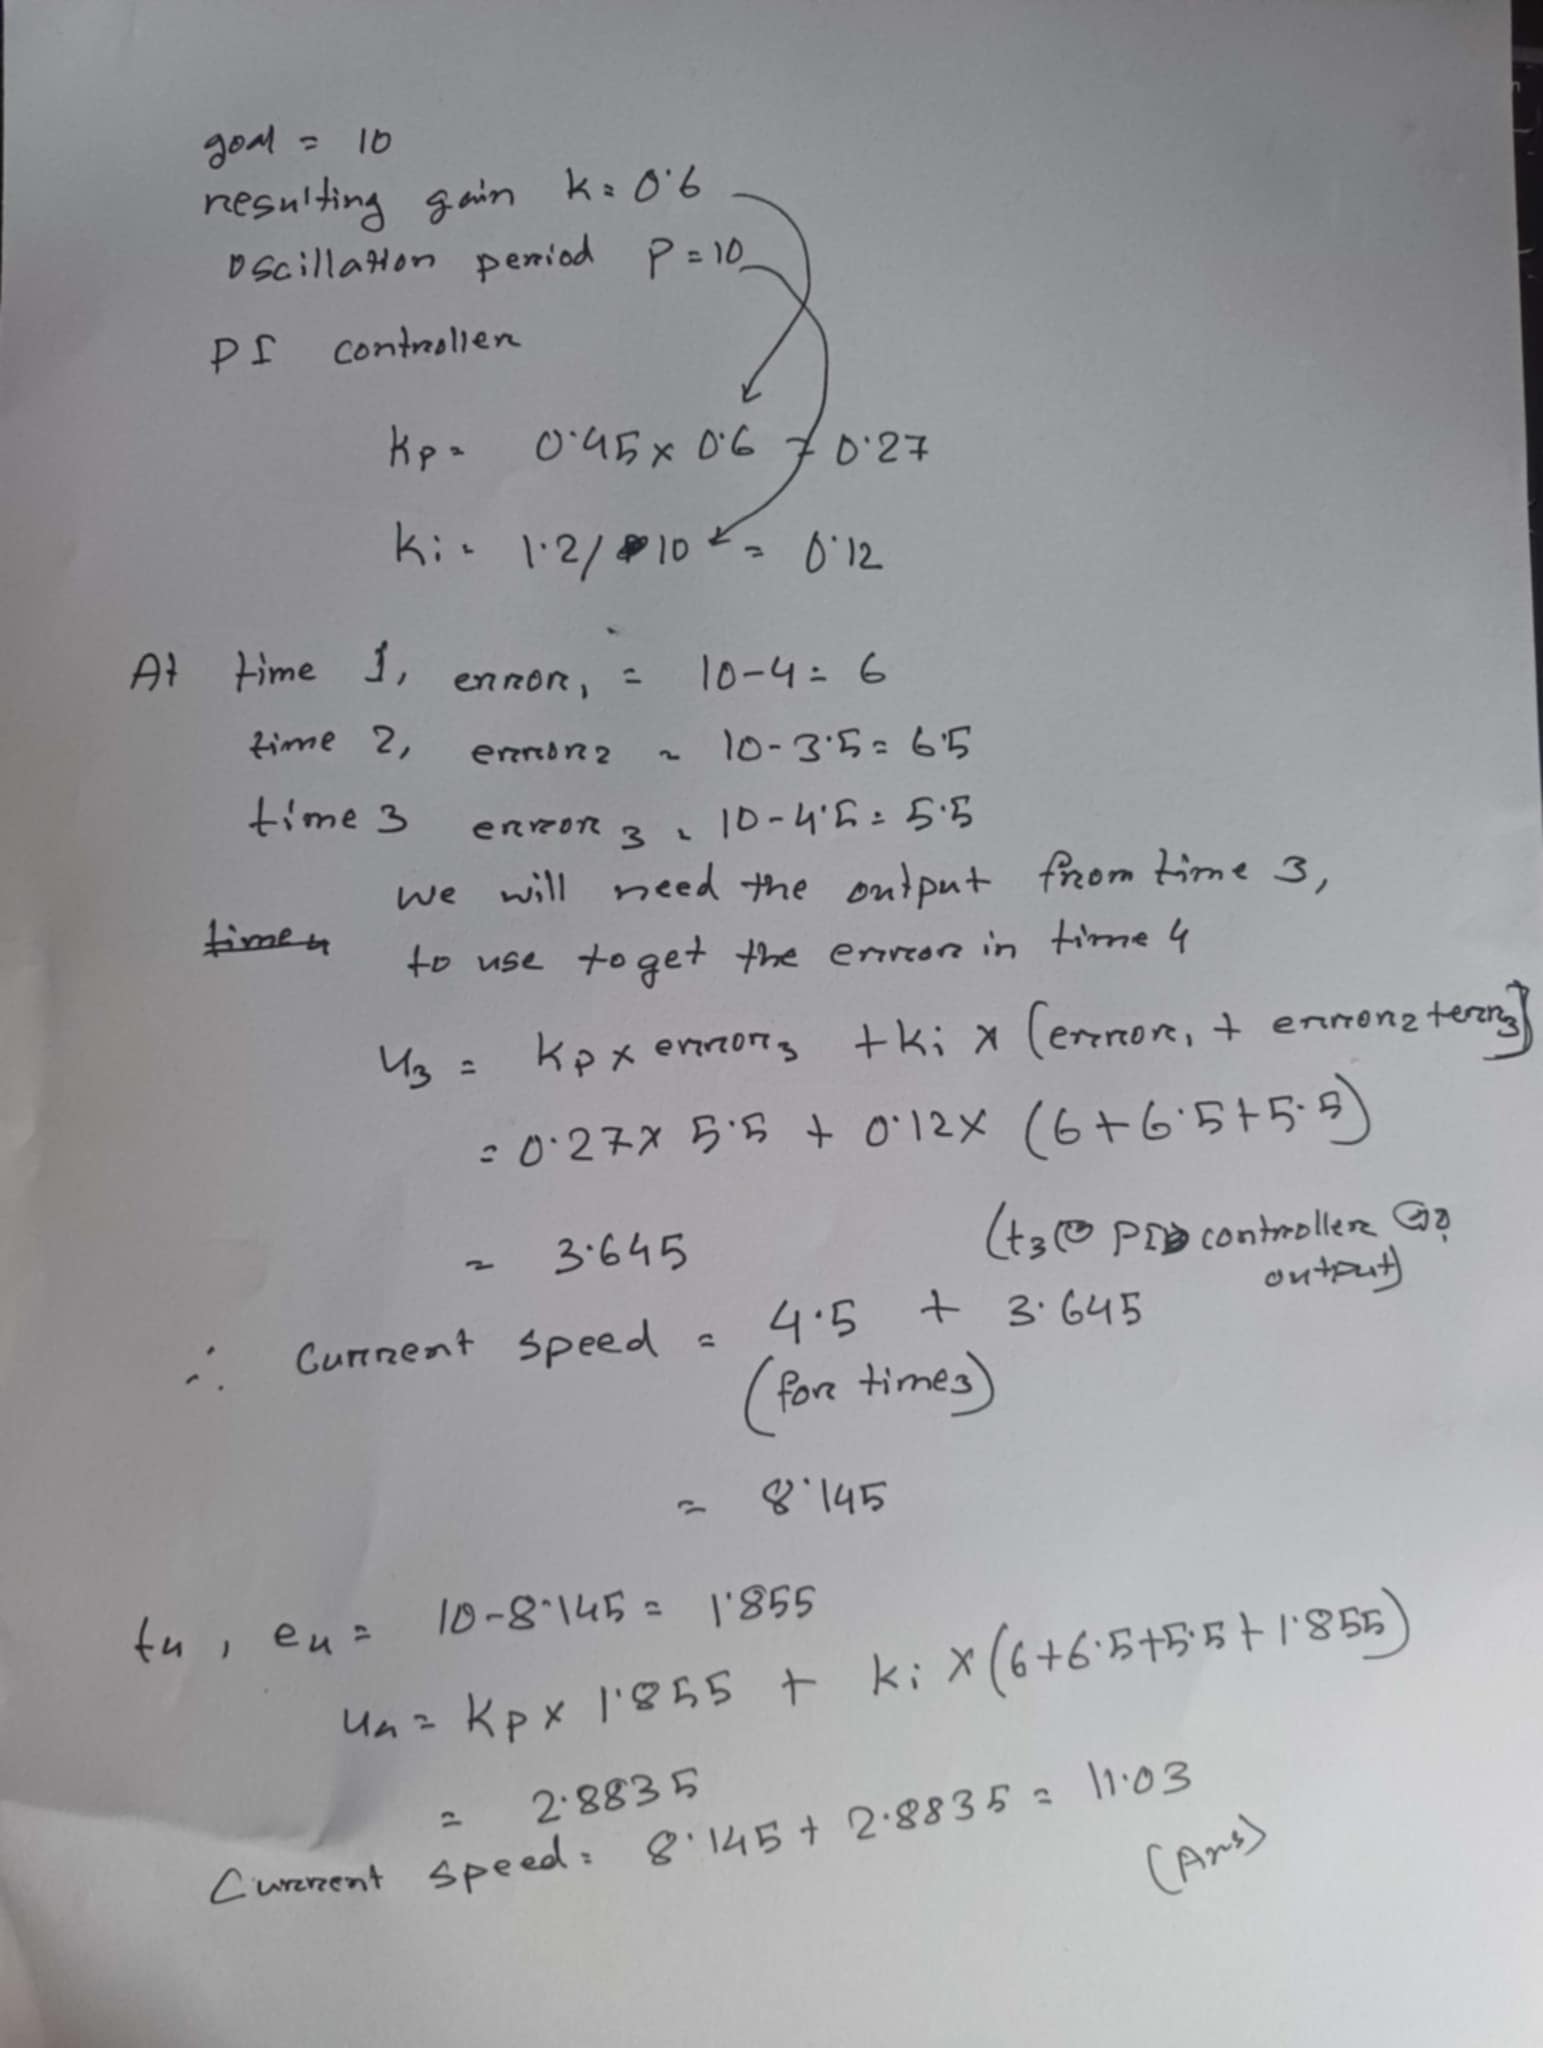 goal = 10
resulting gain K = 0.6
oscillation period P = 10
PI controller
Kp = 0.45 x 0.6 = 0.27
Ki = 1.2/10 = 0.12
At time 1, error1 = 10-4 = 6
time 2, error2 = 10-3.5 = 6.5
time 3 error3 = 10-4.5 = 5.5
we will need the output from time 3,
time4 to use to get the error in time 4
u3 = Kp x error3 + Ki x (error1 + error2 + err3)
= 0.27 x 5.5 + 0.12 x (6+6.5+5.5)
= 3.645 (t3 PI controller output)
∴ Current speed = 4.5 + 3.645
(for time3)
= 8.145
t4, e4 = 10-8.145 = 1.855
u4 = Kp x 1.855 + Ki x (6+6.5+5.5+1.855)
= 2.8835
Current speed = 8.145 + 2.8835 = 11.03
(Ans)